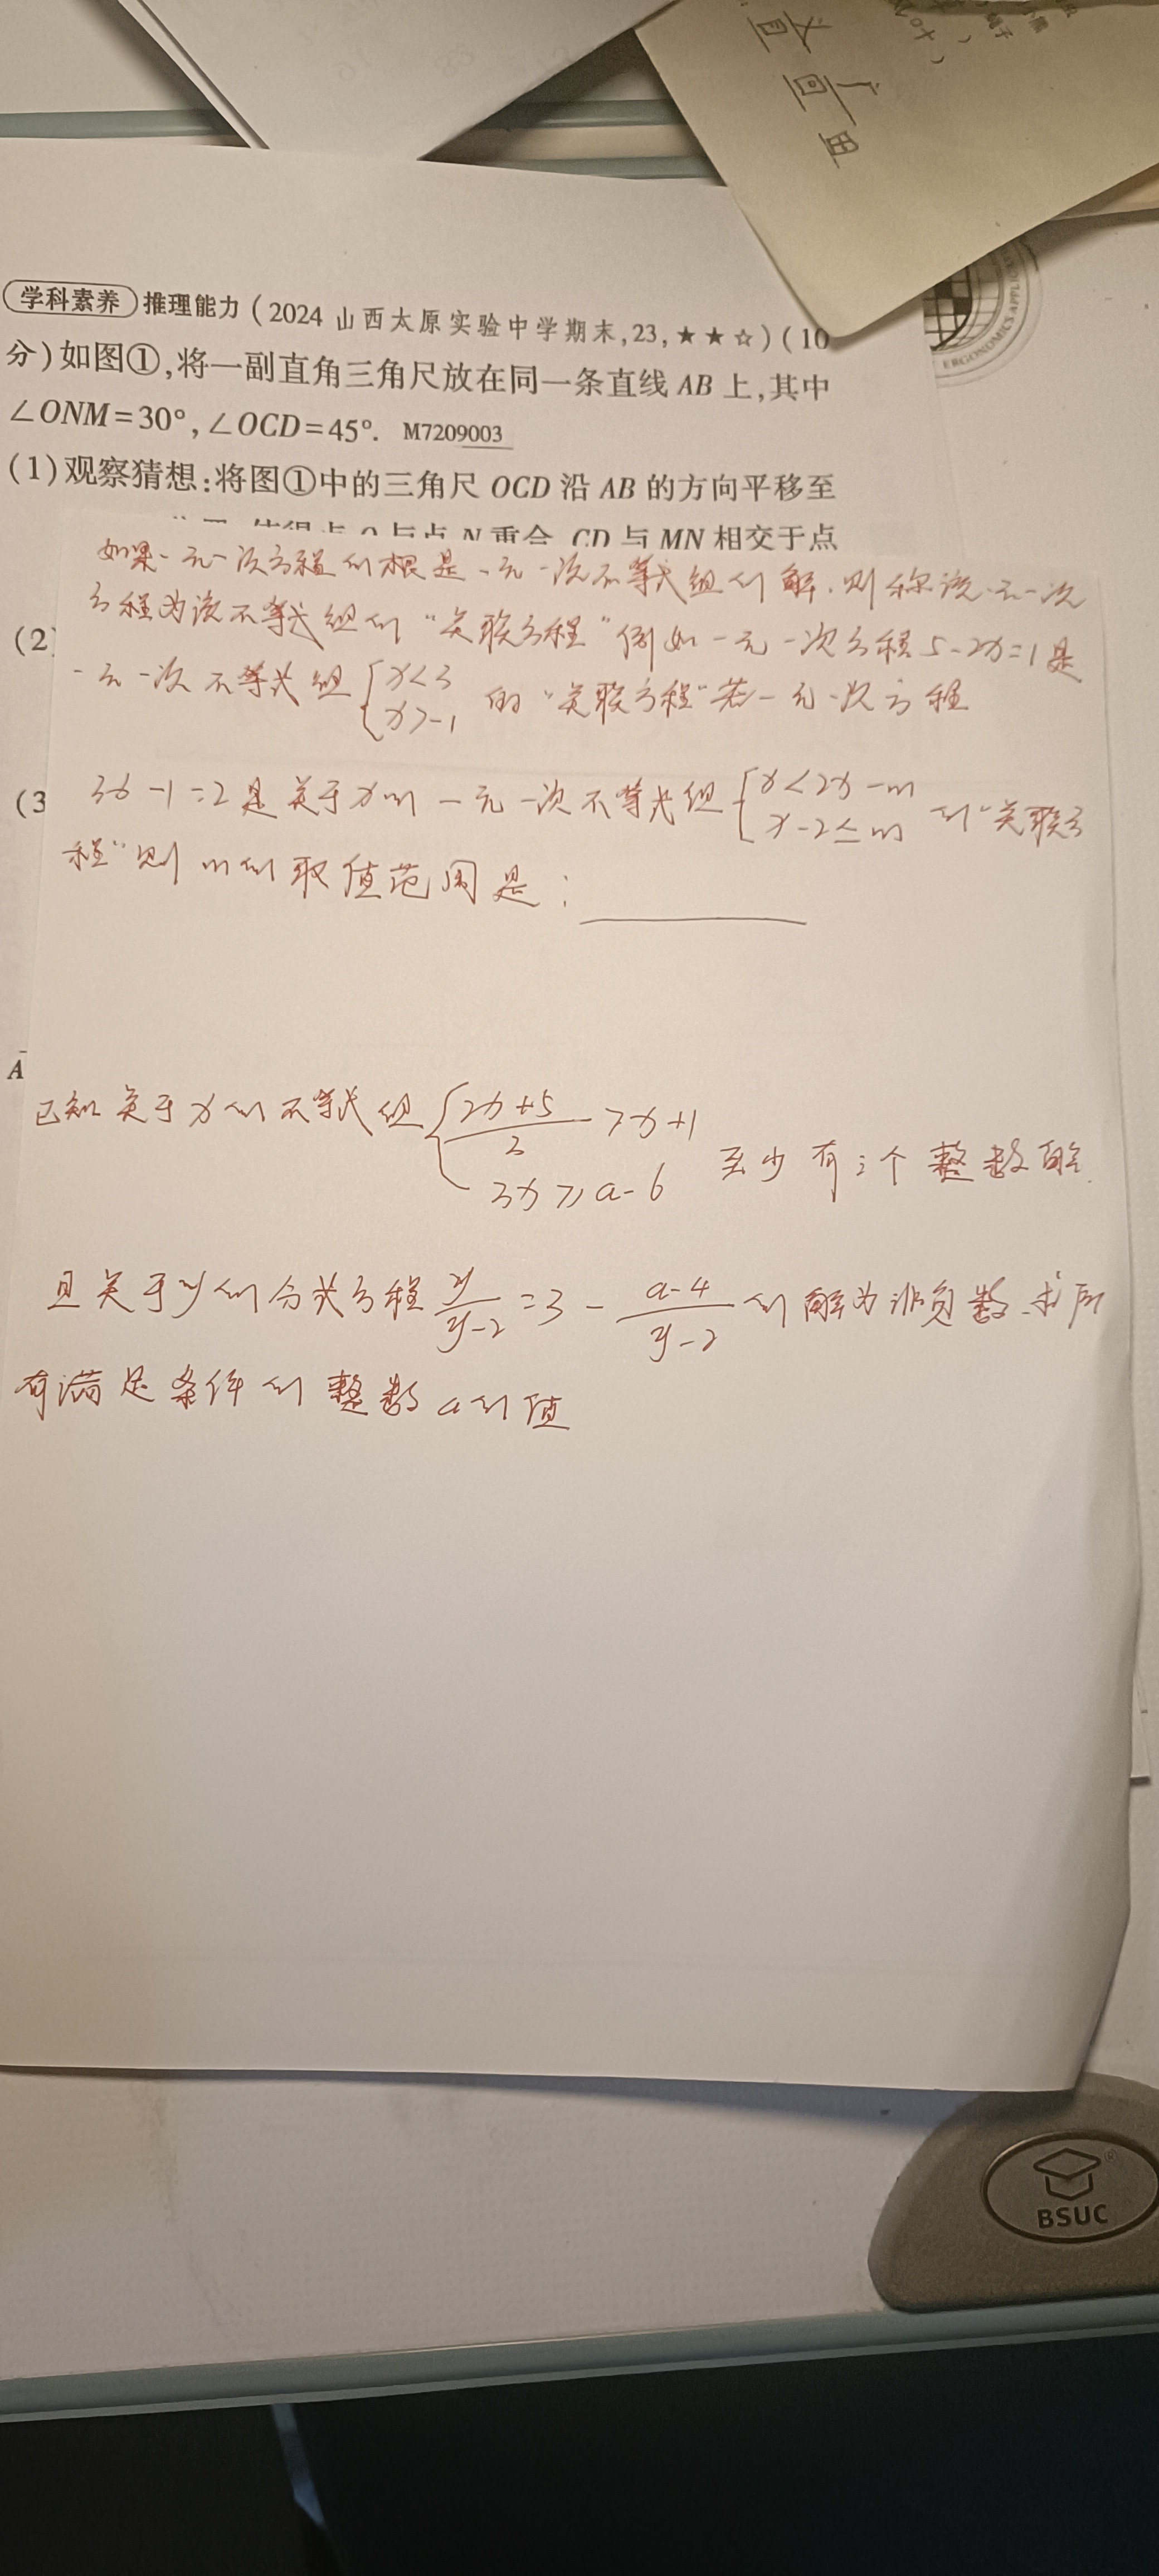 义
直 一
回
田
ERGONOMICS APPLI
学科素养 推理能力(2024山西太原实验中学期末,23,★★☆)(10
分)如图①,将一副直角三角尺放在同一条直线AB上,其中
∠ONM=30°,∠OCD=45°. M7209003
(1)观察猜想:将图①中的三角尺OCD沿AB的方向平移至
使得点O与点N重合,CD与MN相交于点
如果一元一次方程的根是一元一次不等式组的解,则称该一元一次
方程为该不等式组的“关联方程”例如一元一次方程5-2x=1是
(2)
一元一次不等式组{x<3 x>-1 的“关联方程”若一元一次方程
(3
3x-1=2是关于x的一元一次不等式组{x<2x-m x-2≤m 的“关联方
程”则m的取值范围是:
A
已知关于x的不等式组{(2x+5)/3>x+1 3x≥a-6 至少有三个整数解.
且关于y的分式方程y/(y-2)=3-(a-4)/(y-2)的解为非负数.求所
有满足条件的整数a的值
BSUC®